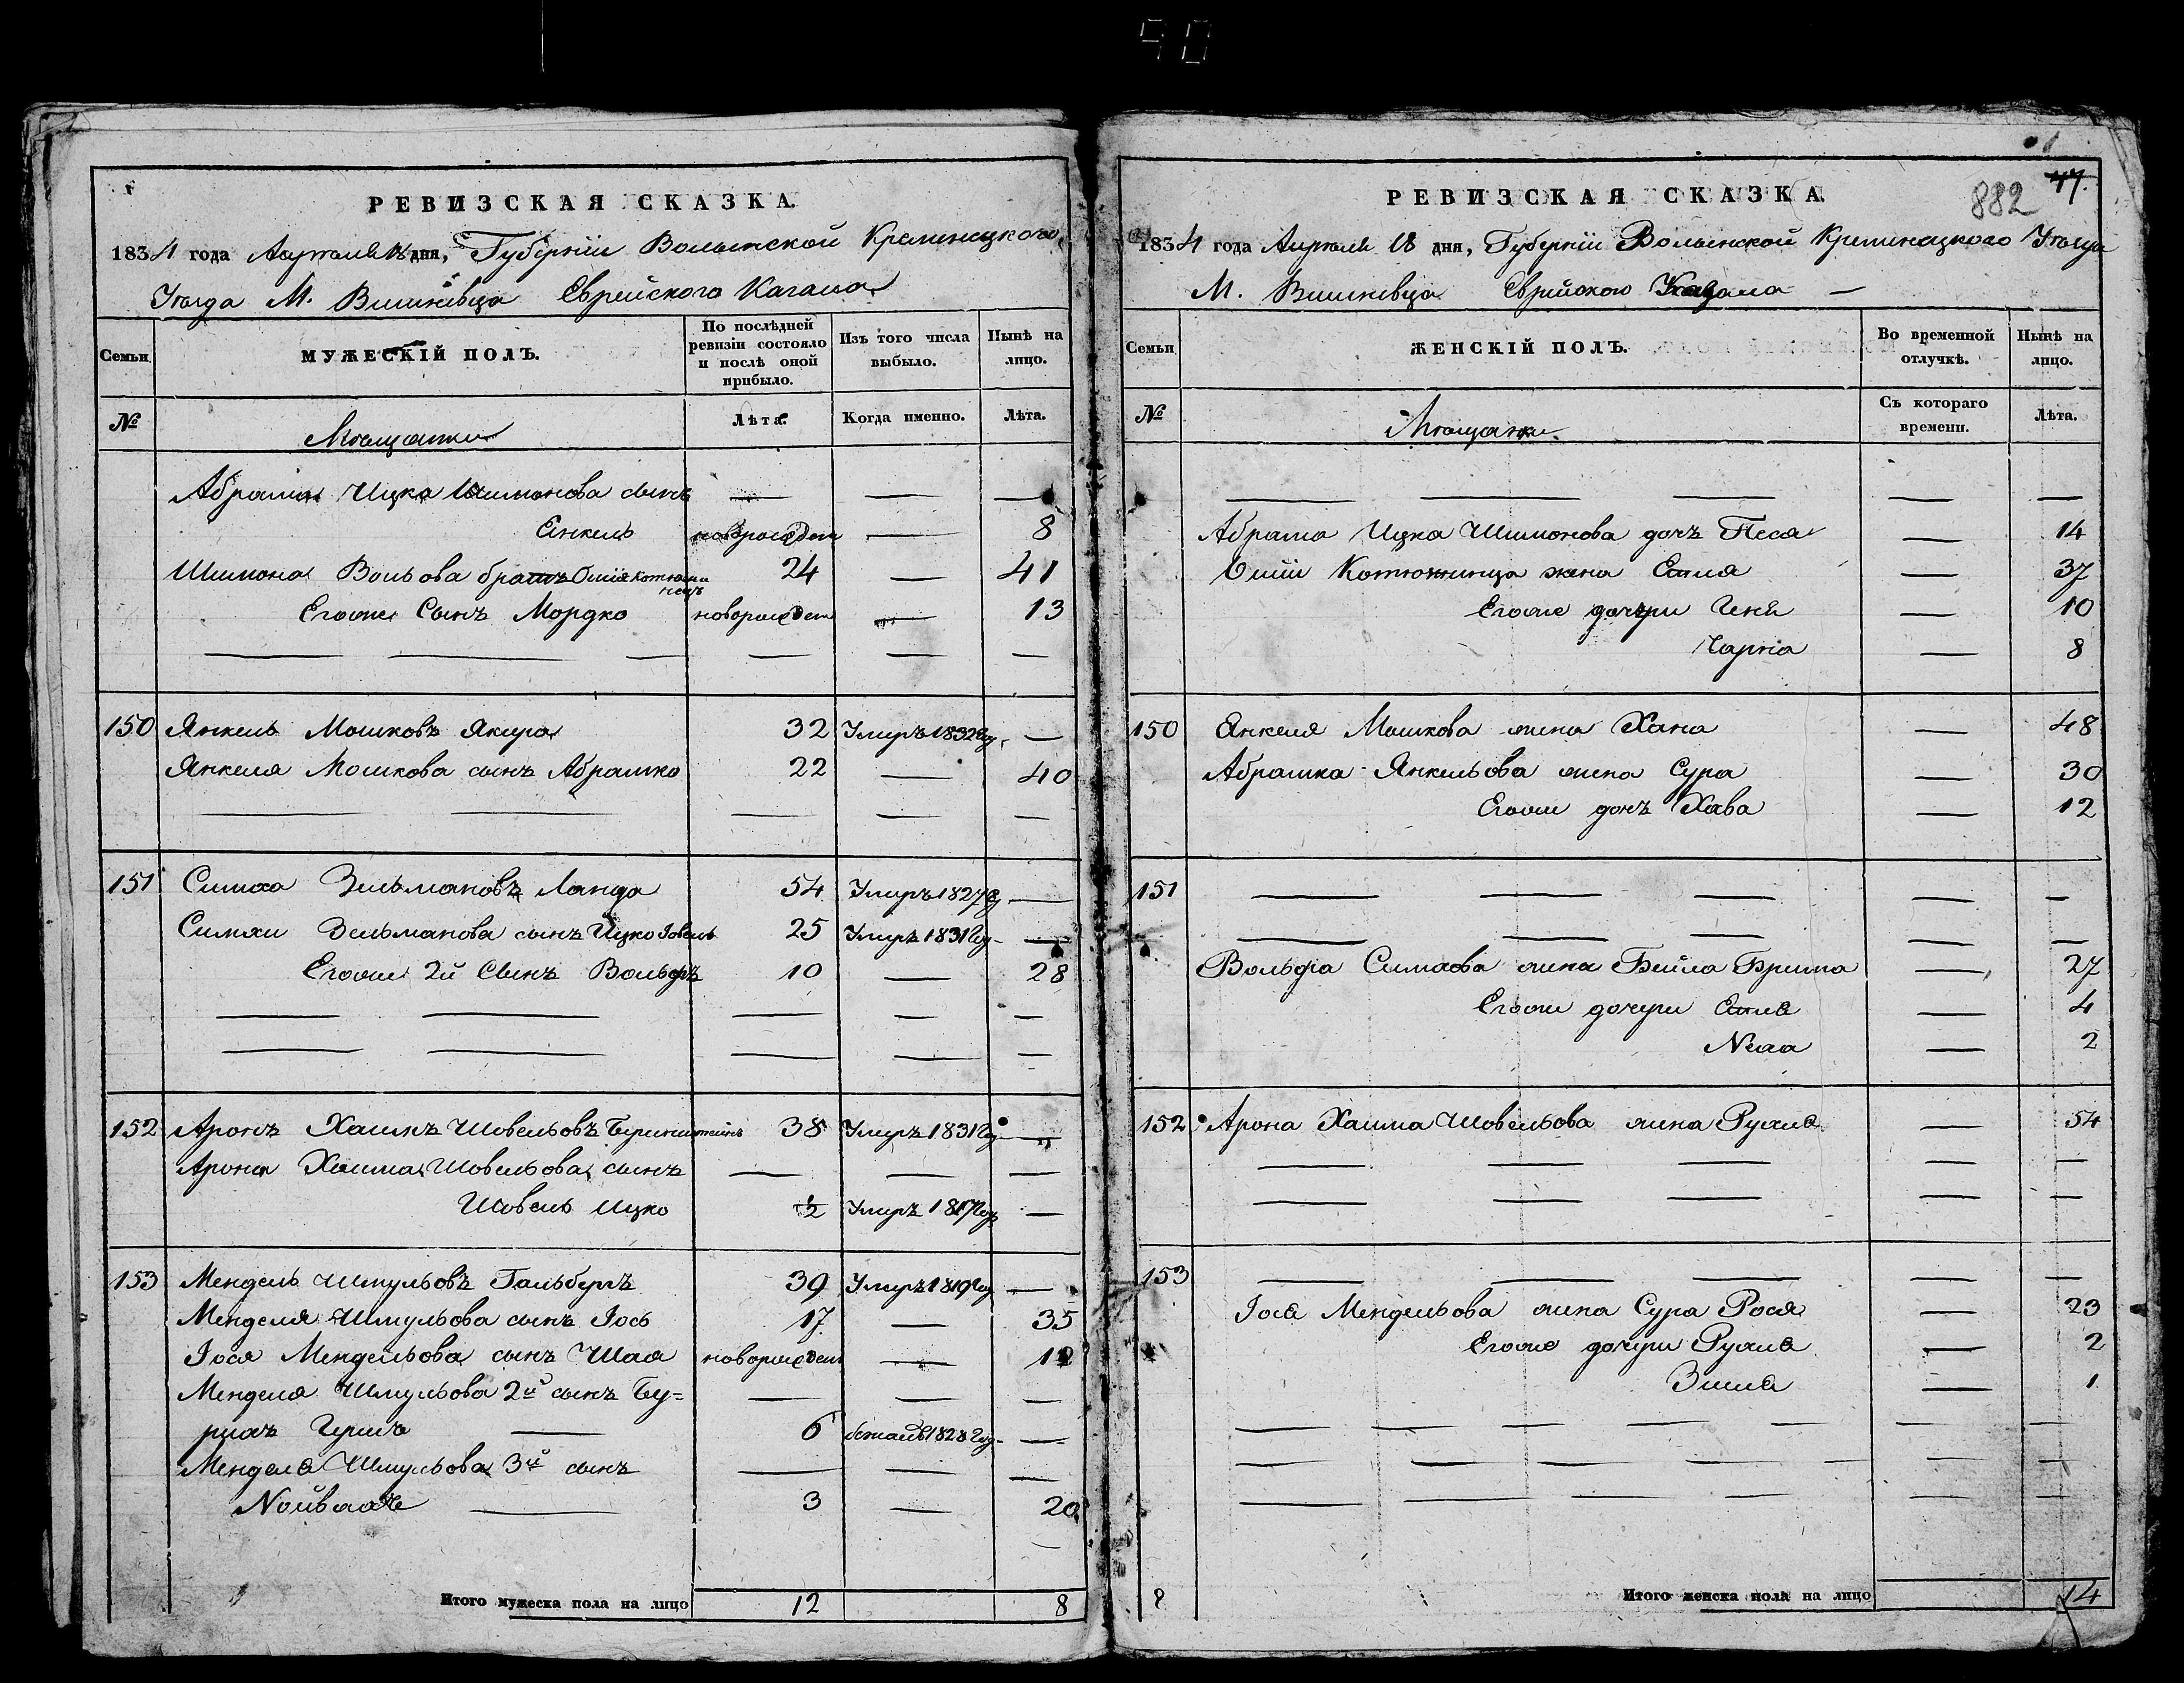 РЕВИЗСКАЯ СКАЗКА.
1834 года Апреля 18 дня, Губернiи Волынской Кременецкого
Уѣзда М. Вишнiвца Еврейского Кагала
Семьи
МУЖЕСКIЙ ПОЛЪ.
По послѣдней ревизiи состояло и послѣ оной прибыло.
Изъ того числа выбыло.
Нынѣ на лицо.
№
Мѣщаны
Лѣта.
Когда именно.
Лѣта.
Абрама Ицка Шимонова сынъ — — —
Енкель новорожден — 8
Шимона Вольова братъ Ошiя Котюжинецъ 24 — 41
Егоже Сынъ Мордко новорожден — 13
150 Янкель Мошковъ Якира 32 Умеръ 1832 год —
Янкеля Мошкова сынъ Абрашко 22 — 40
151 Симха Зельмановъ Ланда 54 Умеръ 1827 г —
Симхи Зельманова сынъ Ицко Iовель 25 Умеръ 1831 год —
Егоже 2й Сынъ Вольфъ 10 — 28
152 Аронъ Хаимъ Шовельовъ Беринштейнъ 38 Умеръ 1831 год —
Арона Хаима Шовельова сынъ — — —
Шовель Ицко ½ Умеръ 1817 год —
153 Мендель Шмульовъ Гальберъ 39 Умеръ 1819 год —
Менделя Шмульова сынъ Iось 17 — 35
Iося Мендельова сынъ Шая новорожден — 12
Менделя Шмульова 2й сынъ Бу= — — —
рихъ Гершъ — 6 бежалъ 1828 год —
Менделя Шмульова 3й сынъ — — —
Нойвахъ — 3 — 20
Итого мужеска пола на лицо 12 8
882 47.
РЕВИЗСКАЯ СКАЗКА.
1834 года Апреля 18 дня, Губернiи Волынской Кременецкого Уѣзда
М. Вишнiвца Еврейского Кагала —
Семьи
ЖЕНСКIЙ ПОЛЪ.
Во временной отлучкѣ.
Нынѣ на лицо.
№
Мѣщанки.
Съ котораго времени.
Лѣта.
Абрама Ицка Шимонова дочъ Песя — 14
Ошiи Котюжинца жена Естя — 37
Егоже дочери Геня — 10
Чарна — 8
150 Янкеля Мошкова жена Хана — 48
Абрашка Янкельова жена Сура — 30
Егоже дочъ Хава — 12
151 — — — — —
Вольфа Симхова жена Бейла Брима — 27
Егоже дочери Естя — 4
Неха — 2
152 Арона Хаима Шовельова жена Рухля — 54
153 — — — — —
Iося Мендельова жена Сура Рося — 23
Егоже дочери Рухля — 2
Зисля — 1
8 Итого женска пола на лицо 14